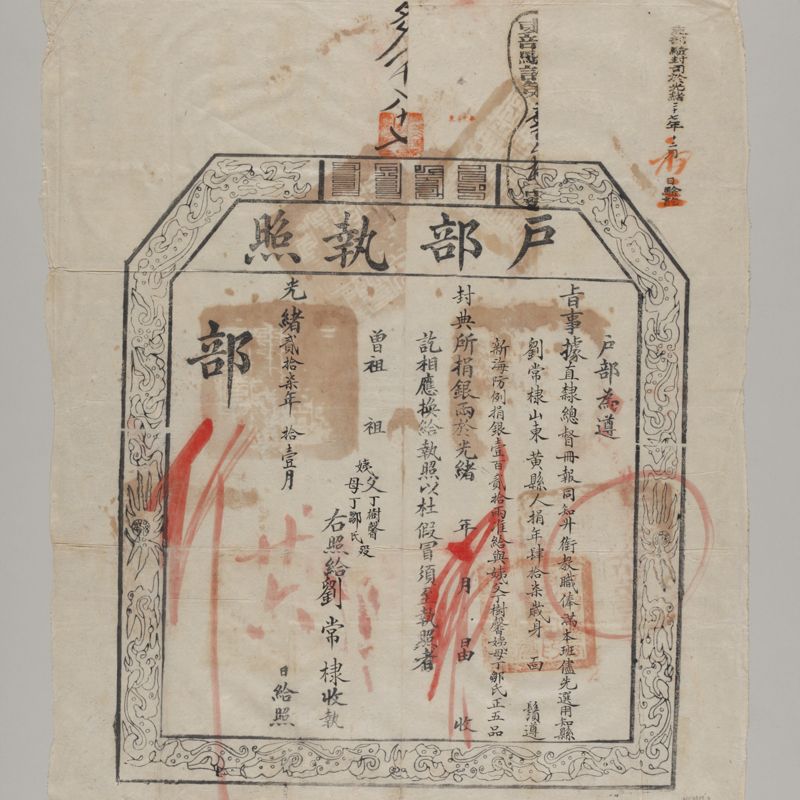 戶部執照
戶部為遵
旨事據直隸總督冊報同知升銜教職俸滿本班儘先選用知縣
劉常棣山東黃縣人捐年肆拾柒歲身 面 鬚遵
新海防例捐銀壹百貳拾兩准給與姨父丁樹馨姨母丁鄒氏正五品
封典所捐銀兩於光緒 年 月 日由 收
訖相應換給執照以杜假冒須至執照者
曾祖 祖
姨父丁樹馨
母丁鄒氏歿
右照給劉常棣收執
光緒貳拾柒年拾壹月 日給照
部